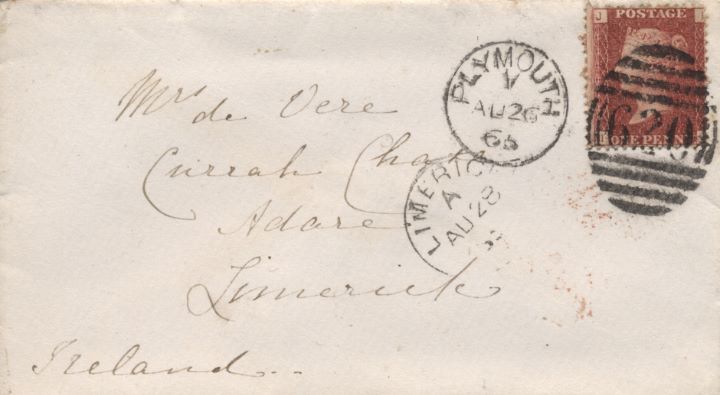 Mrs de Vere
Currah Chase
Adare
Limerick
Ireland..
PLYMOUTH
Y
AU 26
65
LIMERICK
A
AU 28
POSTAGE
J
ONE PENNY
620